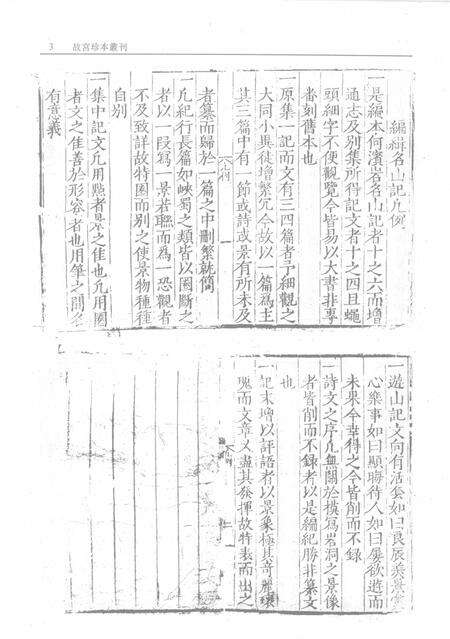 3 故宮珍本叢刊
編輯名山記凡例
一是編本何濱岩名山記者十之六而增
通志及別集所得記文者十之四且蠅
頭細字不便觀覽今皆易以大書非專
番刻舊本也
一原集一記而文有三四篇者予細觀之
大同小異徒增繁冗今故以一篇為主
其三篇中有一節或詩或景有所未及
者纂而歸於一篇之中刪繁就簡
一凡紀行長篇如峽蜀之類皆以圈斷之
者以一段為一景若聯而為一恐觀者
不及致詳故特圈而別之使景物種種
自別
一集中記文凡用點者景之佳也凡用圈
者文之佳善於形容者也用筆之間各
有意義
一遊山記文向有活套如曰良辰美景賞
心樂事如曰願勝待人如曰屢欲遊而
未果今幸得之今皆削而不錄
一詩文之序凡無關於模寫岩洞之景像
者皆削而不錄者以是編紀勝非纂文
也
一記末增以評語者以景象極其奇麗瓌
瑰而文章又盡其發揮故特表而出之